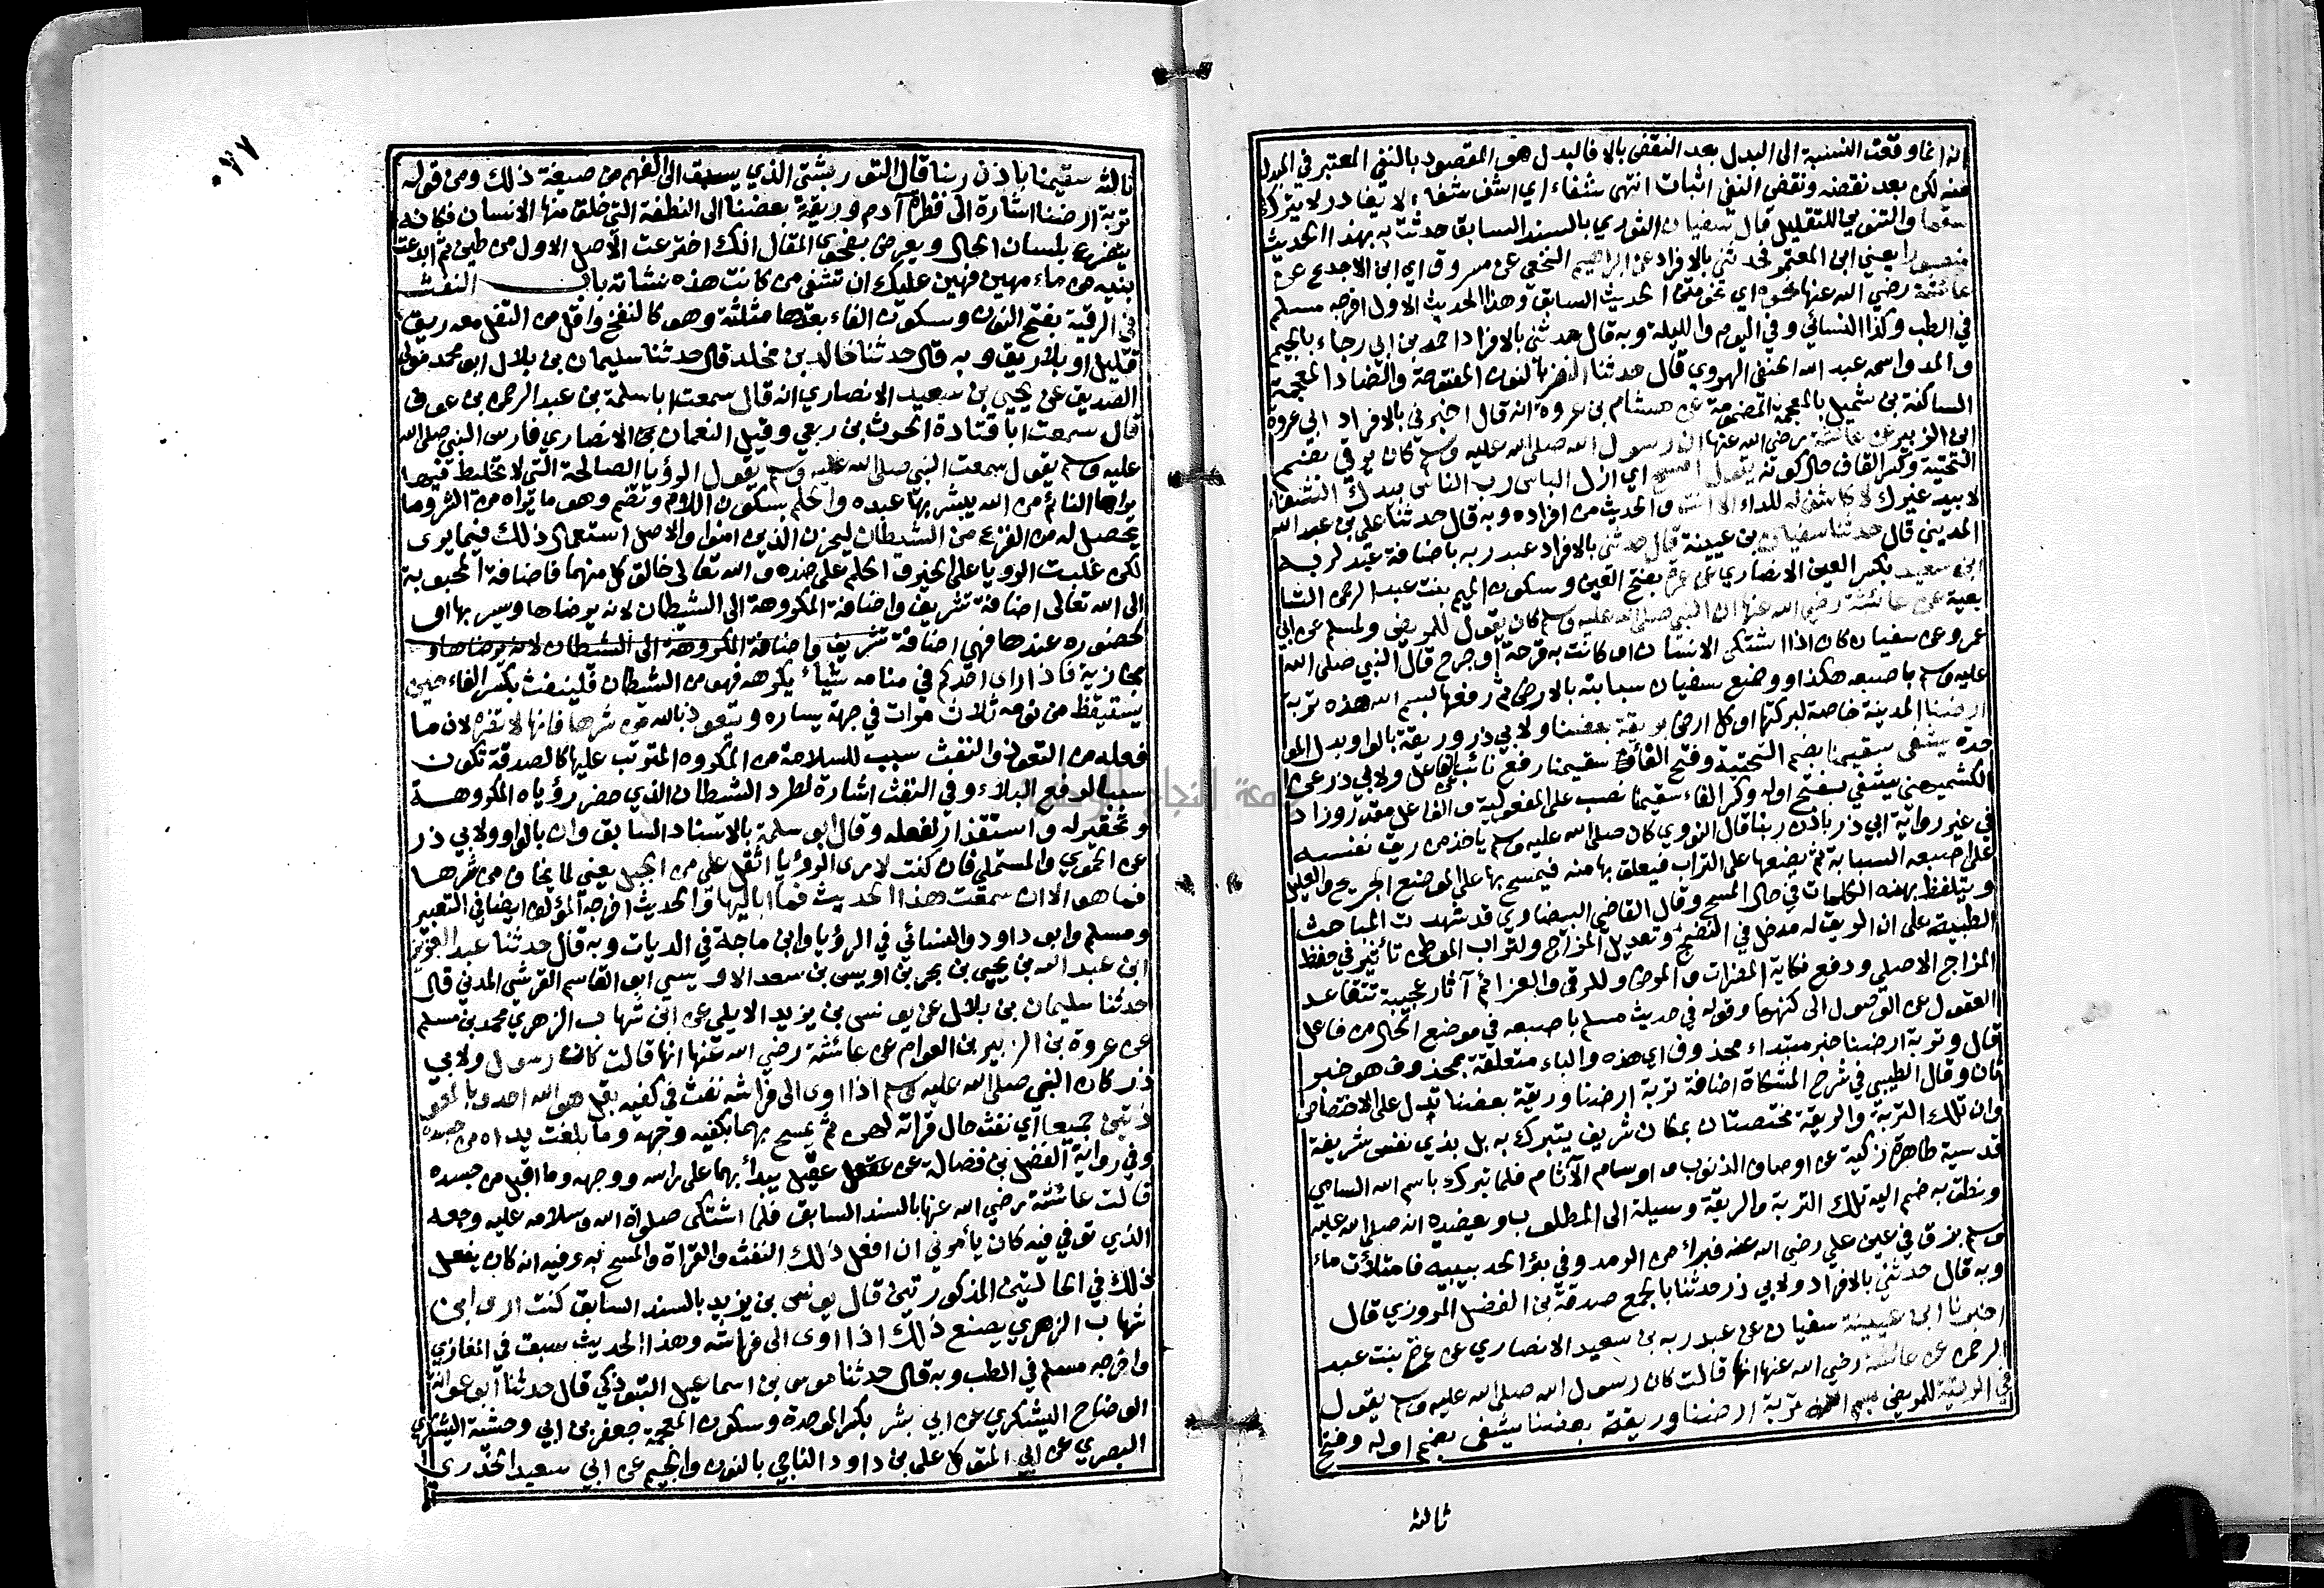 انه انما وقعت النسبة الى البدل بعد النقض بالا فالبدل هو المقصود بالنفي المعتبر في المبدل
منه لكن بعد نقضه ونقض النفي اثبات انتهى شفاء اي اشف شفاء لا يغادر لا يترك
سقما والتنوين للتقليل قال سفيان الثوري بالسند السابق حدثت به بهذا الحديث
منصورا يعني ابن المعتمر فحدثني بالافراد عن ابراهيم النخعي عن مسروق اي ابن الاجدع عن
عائشة رضي الله عنها نحوه اي نحو متن الحديث السابق وهذا الحديث الاول اخرجه مسلم
في الطب وكذا النسائي وفي اليوم والليلة وبه قال حدثني بالافراد احمد بن ابي رجاء بالجيم
والمد واسمه عبد الله الحنفي الهروي قال حدثنا النضر بالنون المفتوحة والضاد المعجمة
الساكنة بن شميل بالمعجمة المضمومة عن هشام بن عروة انه قال اخبرني بالافراد ابي عروة
ابن الزبير عن عائشة رضي الله عنها ان رسول الله صلى الله عليه وسلم كان يرقي بفتح
التحتية وكسر القاف حال كونه يقول امسح اي ازل الباس رب الناس بيدك الشفاء
لا بيد غيرك لا كاشف له للداء الا انت والحديث من افراده وبه قال حدثنا علي بن عبد الله
المديني قال حدثنا سفيان بن عيينة قال حدثني بالافراد عبد ربه باضافة عبد لربه
ابن سعيد بكسر العين الانصاري عن عمرة بفتح العين وسكون الميم بنت عبد الرحمن التا
بعية عن عائشة رضي الله عنها ان النبي صلى الله عليه وسلم كان يقول للمريض ولمسلم عن ابي
عمر وعن سفيان كان اذا اشتكى الانسان او كانت به قرحة او جرح قال النبي صلى الله
عليه وسلم باصبعه هكذا ووضع سفيان سبابته بالارض ثم رفعها بسم الله هذه تربة
ارضنا المدينة خاصة لبركتها او كل ارض بريقة بعضنا ولابي ذر وريقة بالواو بدل المو
حدة يشفى سقيمنا بضم التحتية وفتح الفاء سقيمنا رفع نائب عن الفاعل ولابي ذر عن
الكشميهني يشفي بفتح اوله وكسر الفاء سقيمنا نصب على المفعولية والفاعل مقدر وزاد
في غير رواية ابي ذر باذن ربنا قال النووي كان صلى الله عليه وسلم ياخذ من ريق نفسه
على اصبعه السبابة ثم يضعها على التراب فيعلق بها منه فيمسح بها على الموضع الجريح والعليل
ويتلفظ بهذه الكلمات في حال المسح وقال القاضي البيضاوي قد شهدت المباحث
الطبية على ان الريق له مدخل في النضج وتعديل المزاج ولتراب الوطن تأثير في حفظ
المزاج الاصلي ودفع نكاية المضرات والمرض وللرقى والعزائم آثار عجيبة تتقاعد
العقول عن الوصول الى كنهها وقوله في حديث مسلم باصبعه في موضع الحال من فاعل
قال وتربة ارضنا خبر مبتداء محذوف اي هذه والباء متعلقة بمحذوف هو خبر
ثان وقال الطيبي في شرح المشكاة اضافة تربة ارضنا وريقة بعضنا تدل على الاختصاص
وان تلك التربة والريقة مختصتان بمكان شريف يتبرك به بل بذي نفس شريفة
قدسية طاهرة زكية عن اوصاف الذنوب واوسام الآثام فلما تبرك باسم الله السامي
ونطق به ضم اليه تلك التربة والريقة وسيلة الى المطلوب ويعضده انه صلى الله عليه
وسلم بزق في عين علي رضي الله عنه فبراء من الرمد وفي بؤ الحديبيه فامتلأت ماء
وبه قال حدثني بالافراد ولابي ذر حدثنا بالجمع صدقة بن الفضل المروزي قال
اخبرنا ابن عيينة سفيان عن عبد ربه بن سعيد الانصاري عن عمرة بنت عبد
الرحمن عن عائشة رضي الله عنها انها قالت كان رسول الله صلى الله عليه وسلم يقول
في الرقية للمريض بسم الله تربة ارضنا وريقة بعضنا يشفى بضم اوله وفتح
ثالثه
٧٧
ثالثه سقيمنا باذن ربنا قال التوربشتي الذي يسبق الى الفهم من صيغة ذلك ومن قوله
تربة ارضنا اشارة الى فطرة آدم وريقة بعضنا الى النطفة التي خلق منها الانسان فكانه
يتضرع بلسان الحال ويعرض بفحوى المقال انك اخترعت الاصل الاول من طين ثم ابدعت
بنيه من ماء مهين فهين عليك ان تشفي من كانت هذه نشاته باب النفث
في الرقية بفتح النون وسكون الفاء بعدها مثلثة وهو كالنفخ واقل من التفل معه ريق
قليل او بلا ريق وبه قال حدثنا خالد بن مخلد قال حدثنا سليمان بن بلال ابو محمد مولى
الصديق عن يحيى بن سعيد الانصاري انه قال سمعت ابا سلمة بن عبد الرحمن بن عوف
قال سمعت ابا قتادة الحرث بن ربعي وقيل النعمان بن الانصاري فارس النبي صلى الله
عليه وسلم يقول سمعت النبي صلى الله عليه وسلم يقول الرؤيا الصالحة التي لا تخليط فيها
يراها النائم من الله يبشر بها عبده والحلم بسكون اللام وتضم وهو ما يراه من الشر وما
يحصل له من الفزع من الشيطان ليحزن الذين امنوا والاصل استعمال ذلك فيما يرى
لكن غلبت الرويا على الخير والحلم على ضده والله تعالى خالق كل منهما فاضافة المحبوبة
الى الله تعالى اضافة تشريف واضافة المكروهة الى الشيطان لانه يرضاها ويسر بها او
لحضوره عندها فهي اضافة تشريف واضافة المكروهة الى الشيطان لانه يرضاها و
مجازية فاذا راى احدكم في منامه شيأ يكرهه فهو من الشيطان فلينفث بكسر الفاء حين
يستيقظ من نومه ثلاث مرات في جهة يساره ويتعوذ بالله من شرها فانها لا تضره لان ما
فعله من التعوذ والنفث سبب للسلامة من المكروه المترتب عليها كالصدقة تكون
سببا لدفع البلاء وفي النفث اشارة لطرد الشيطان الذي حضر رؤياه المكروهة
وتحقير له واستقذار لفعله وقال ابو سلمة بالاسناد السابق وان بالواو ولابي ذر
عن الحموي والمستملي فان كنت لارى الرؤيا اثقل علي من الجبل يعني لما يخاف من شرها
فما هو الا ان سمعت هذا الحديث فما اباليها والحديث اخرجه المؤلف ايضا في التعبير
ومسلم وابو داود والنسائي في الرؤيا وابن ماجة في الديات وبه قال حدثنا عبد العزيز
ابن عبد الله بن يحيى بن عمر بن اويس بن سعد الاويسي ابو القاسم القرشي المدني قال
حدثنا سليمان بن بلال عن يونس بن يزيد الايلي عن ابن شهاب الزهري محمد بن مسلم
عن عروة بن الزبير بن العوام عن عائشة رضي الله عنها انها قالت كان رسول ولابي
ذر كان النبي صلى الله عليه وسلم اذا اوى الى فراشه نفث في كفيه بقل هو الله احد وبالمعو
ذتين جميعا اي نفث حال قراته لهن ثم يمسح بهما بكفيه وجهه وما بلغت يداه من جسده
وفي رواية الفضل بن فضالة عن عقيل يبدأ بهما على راسه ووجهه وما اقبل من جسده
قالت عائشة رضي الله عنها بالسند السابق فلما اشتكى صلواة الله وسلامه عليه وجعه
الذي توفي فيه كان يأمرني ان افعل ذلك النفث والقراة والمسح به وفيه انه كان يفعل
ذلك في الحالتين المذكورتين قال يونس بن يزيد بالسند السابق كنت ارى ابن
شهاب الزهري يصنع ذلك اذا اوى الى فراشه وهذا الحديث سبق في المغازي
واخرجه مسلم في الطب وبه قال حدثنا موسى بن اسماعيل التبوذكي قال حدثنا ابو عوانة
الوضاح اليشكري عن ابي بشر بكسر الموحدة وسكون المعجمة جعفر بن ابي وحشية اليشكري
البصري عن ابي المتوكل علي بن داود الناجي بالنون والجيم عن ابي سعيد الخدري